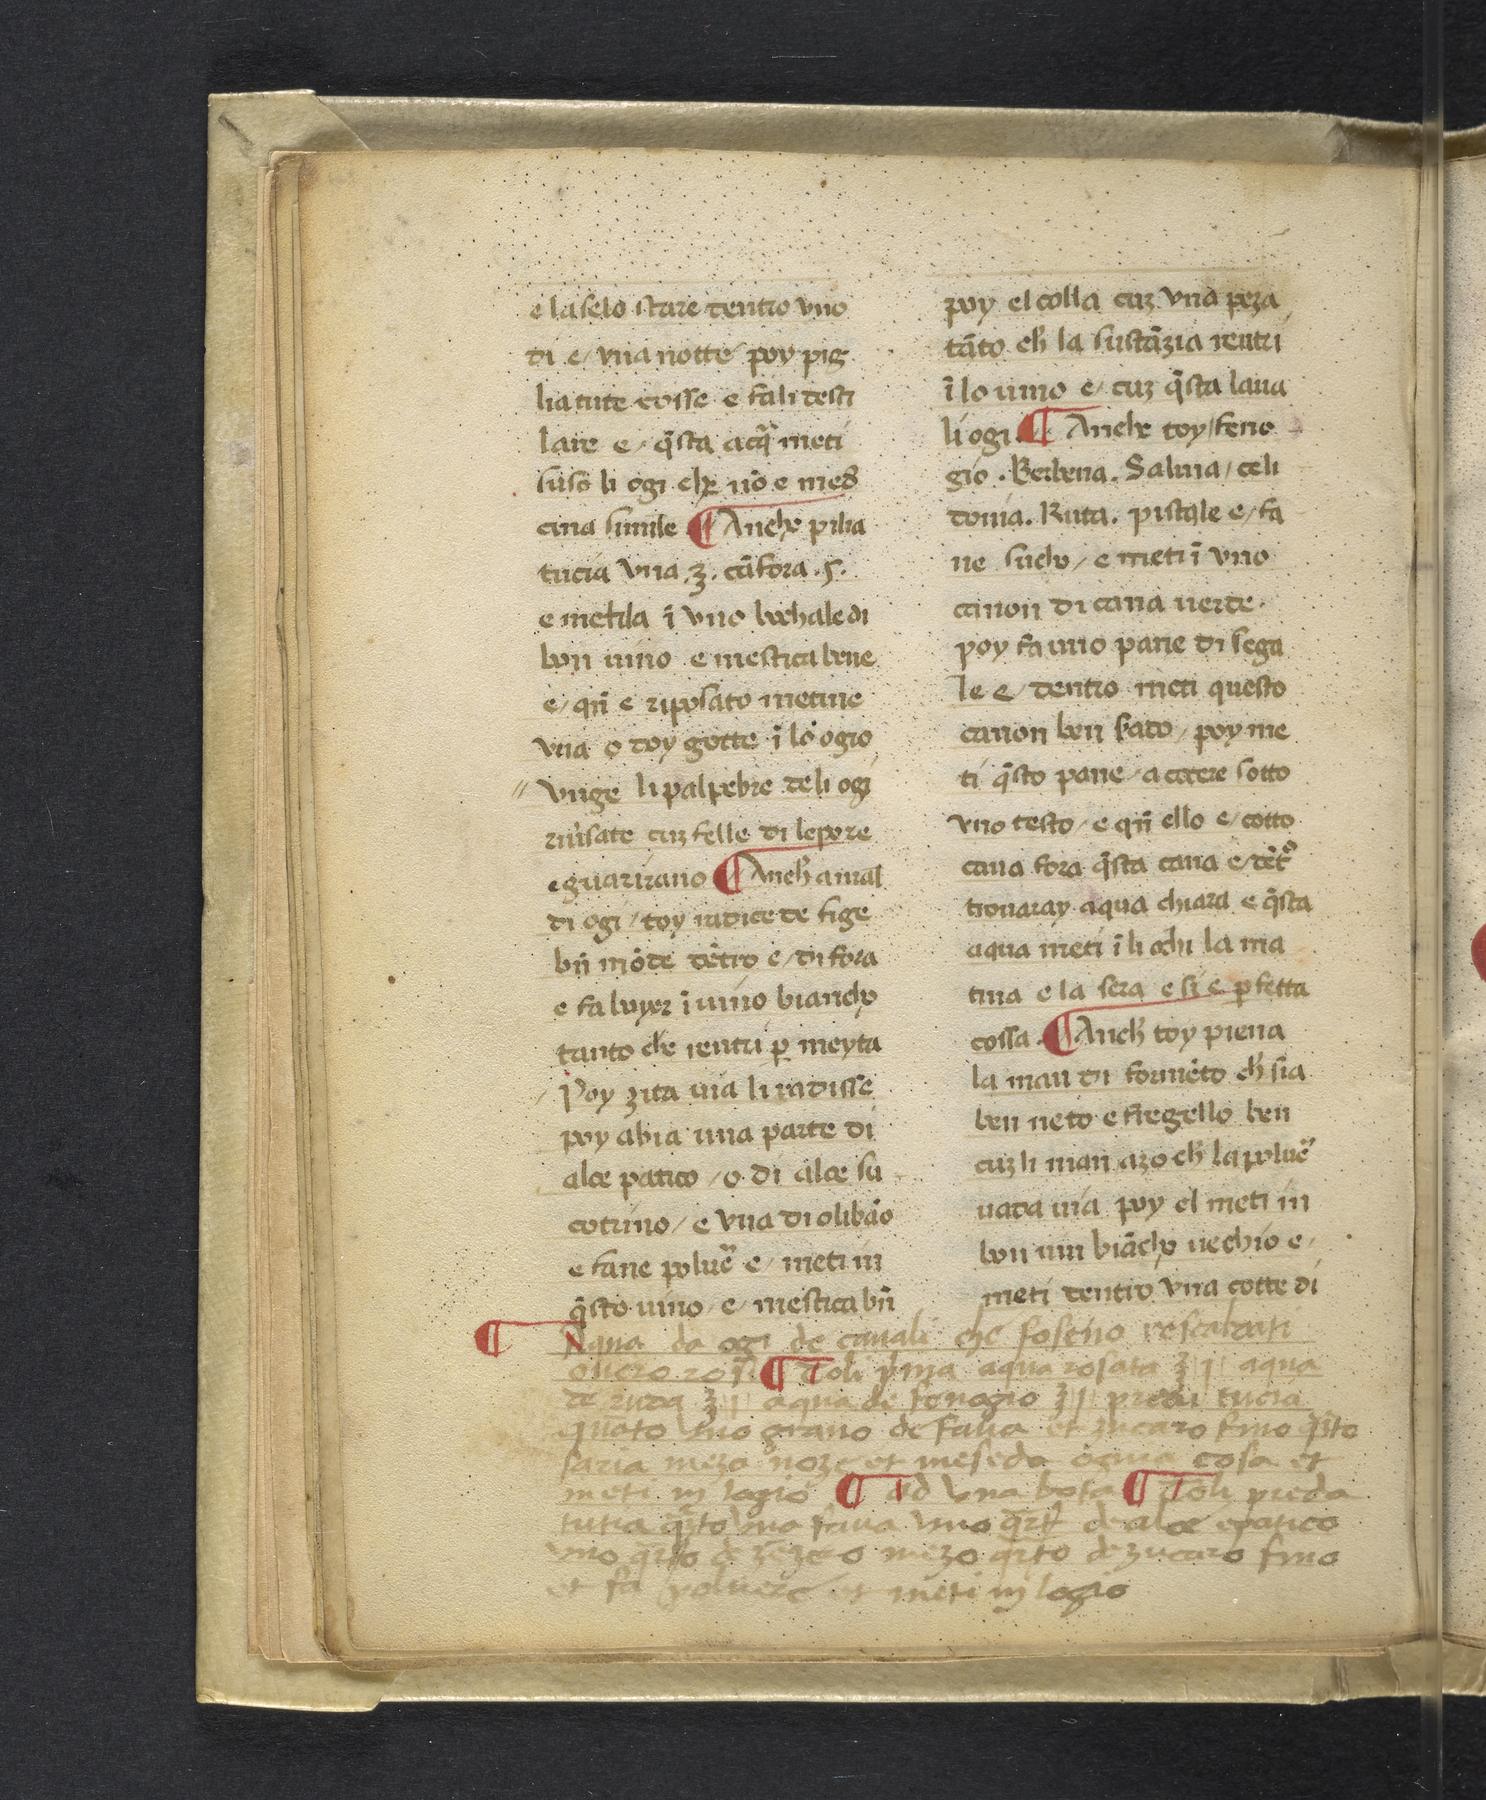 e laselo stare dentro vno
di e / vna notte poy pig
lia tute cosse e fali desti
lare e / q̄sta acq̄ meti
suso li ogi che nō e med
cina simile ¶ Anche pilia
tucia vna ʒ. cāfora .ς.
e metila ī vno bochale di
bon uino e mestica bene
e / qñ e riposato metine
vna o doy gotte ī lo ogio
vnge li palpebre deli ogi
cuz felle di lepore
e guarirano ¶ Anch a mal
di ogi / toy radice de fige
bñ mōde dētro e / di fora
e fa boyer ī uino biancho
tanto che rentri ꝑ meyta
Poy zita uia li radisse
poy abia una parte di
aloe patico / o di aloe su
cotrino / e vna di olibāo
e fane polue e / meti in
q̄sto uino / e / mestica bñ
poy el colla cuz vna peza
tāto ch la sustāzia rentri
ī lo uino e / cuz q̄sta laua
li ogi ¶ Anche toy / feno
gio . Berbena . Saluia / celi
donia . Ruta . pistale e / fa
ne sucho / e meti ī vno
canon di cana uerde .
poy fa uno pane di sega
le e / dentro meti questo
canon ben stato / poy me
ti q̄sto pane / a cocere sotto
vno testo / e qñ ello e / cotto
caua fora q̄sta cana e / dēto
trouaray aqua chiara e q̄sta
aqua meti ī li ochi la ma
tina e la sera e si e ꝑfetta
cossa . ¶ Anch toy piena
la man di formēto ch sia
ben neto e fregello ben
cuz li man azo ch la polue
uada uia poy el meti in
bon uin biācho uechio e /
meti dentro vna cotte di
¶ Aqua da ogi de cauali che foseno rescaldati
ouero ros ¶ Toli pma aqua rosata ʒ j aqua
de ruda ʒ j aqua de fenogio ʒ j predi tucia
quāto vno grano de faua et zucaro fino q̄to
saria meza noze et meseda ognia cosa et
meti in logio ¶ ad vna bota ¶ Toli preda
tutia q̄to vna faua vno q̄rt de aloe epatico
vno q̄rto de zēzero mezo q̄rto de zucaro fino
et fa poluere et meti in logio